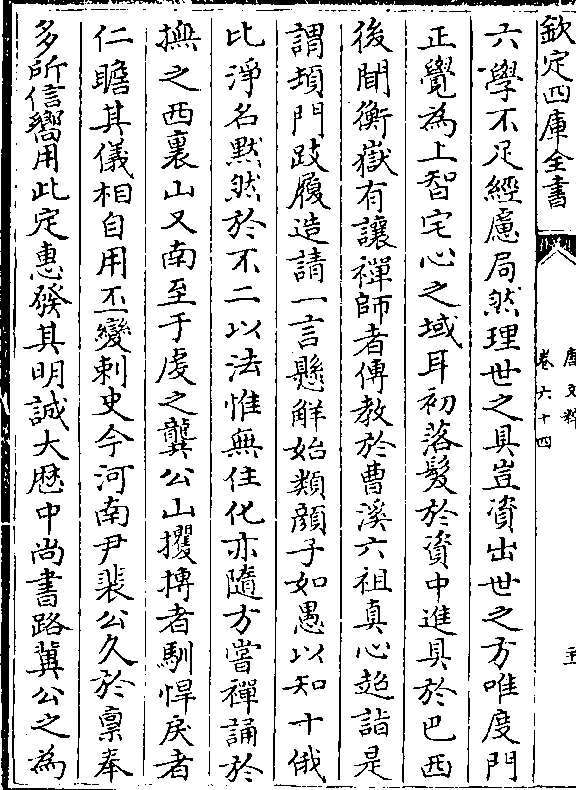 欽定四庫全書
唐文粹
卷六十四
五
六學不足經慮局然理世之具豈資出世之方唯度門
正覺為上智宅心之域耳初落髮於資中進具於巴西
後聞衡嶽有讓禪師者傳教於曹溪六祖真心超詣是
謂頓門跂履造請一言懸解始類顔子如愚以知十俄
比淨名默然於不二以法惟無住化亦隨方嘗禪誦於
撫之西裏山又南至于虔之龔公山攫摶者馴悍戾者
仁瞻其儀相自用丕變刺史今河南尹裴公久於禀奉
多所信嚮用此定惠發其明誠大歴中尚書路冀公之為